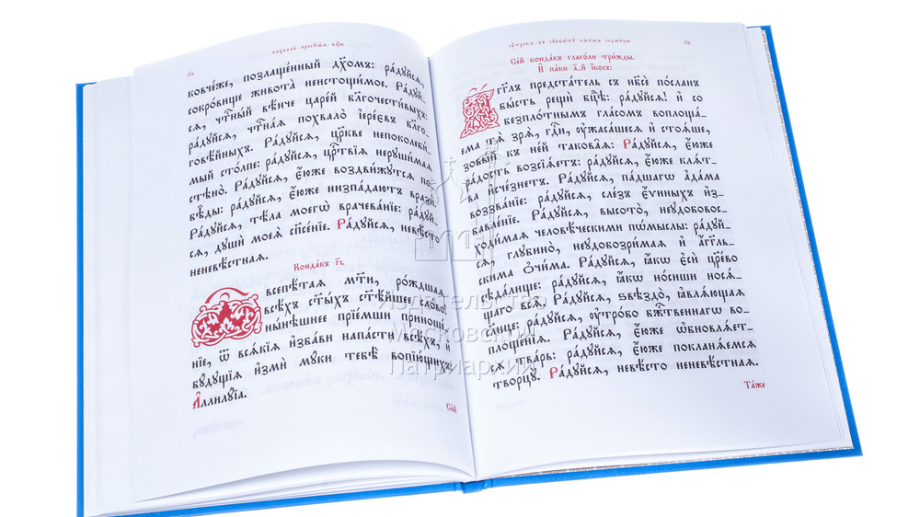 ковче́же, позлаще́нный дх҃омъ: ра́дуйсѧ,
сокро́вище живота̀ неистощи́мое. Ра́дуй_
сѧ, чтⷭ҇ны́й вѣ́нче царе́й бл҃гочести́выхъ:
ра́дуйсѧ, чтⷭ҇на́ѧ похвало̀ і҆ере́євъ бл҃го_
говѣ́йныхъ. Ра́дуйсѧ, цр҃кве непоколеби́_
мый сто́лпе: ра́дуйсѧ, црⷭ҇твїѧ неруши́маѧ
стѣно̀. Ра́дуйсѧ, є҆ю́же воздви́жутсѧ по_
бѣ̑ды: ра́дуйсѧ, є҆ю́же низпа́даютъ вразѝ.
Ра́дуйсѧ, тѣ́ла моегѡ̀ врачева́нїе: ра́дуй_
сѧ, дꙋшѝ моеѧ̀ сп҃се́нїе. Ра́дуйсѧ, невѣ́сто
неневѣ́стнаѧ.
Конда́къ гі҃.
Ѽ всепѣ́таѧ мт҃и, ро́ждшаѧ
всѣ́хъ ст҃ы́хъ ст҃ѣ́йшее сло́во!
ны́нѣшнее прїе́мши приноше́_
нїе, ѿ всѧ́кїѧ и҆зба́ви напа́сти всѣ́хъ, и҆
бꙋ́дꙋщїѧ и҆змѝ мꙋ́ки тебѣ̀ вопїю́щихъ:
А҆ллилꙋ́їа.
Се́й
Се́й конда́къ глаго́ли три́жды.
И҆ па́ки а҃-й і҆́косъ:
А҆́гг҃лъ предста́тель съ нб҃сѐ по́сланъ
бы́сть рещѝ бцⷣѣ: ра́дуйсѧ! и҆ со
безпло́тнымъ гла́сомъ воплоща́_
ема тѧ̀ зрѧ̀, гдⷭ҇и, ᲂу҆жаса́шесѧ и҆ стоѧ́ше,
зовы́й къ не́й такова̑ѧ: Ра́дуйсѧ, є҆ю́же
ра́дость возсїѧ́етъ: ра́дуйсѧ, є҆ю́же клѧ́т_
ва и҆зче́знетъ. Ра́дуйсѧ, па́дшагѡ а҆да́ма
воззва́нїе: ра́дуйсѧ, сле́зъ є҆́ѵиныхъ и҆з_
бавле́нїе. Ра́дуйсѧ, высото̀, неꙋдобовос_
ходи́маѧ человѣ́ческими по́мыслы: ра́дуй_
сѧ, глꙋбино̀, неꙋдобозри́маѧ и҆ а҆́гг҃ль_
скима ѻ҆чи́ма. Ра́дуйсѧ, ꙗ҆́кѡ є҆сѝ цр҃е́во
сѣда́лище: ра́дуйсѧ, ꙗ҆́кѡ но́сиши носѧ́_
щаго всѧ̑. Ра́дуйсѧ, ѕвѣздо̀, ꙗ҆влѧ́ющаѧ
со́лнце: ра́дуйсѧ, ᲂу҆тро́бо бж҃е́ственнагѡ во_
площе́нїѧ. Ра́дуйсѧ, є҆ю́же ѡ҆бновлѧ́ет_
сѧ тва́рь: ра́дуйсѧ, є҆ю́же покланѧ́емсѧ
творцꙋ̀. Ра́дуйсѧ, невѣ́сто неневѣ́стнаѧ.
Та́же
Издательство
Московской
Патриархии